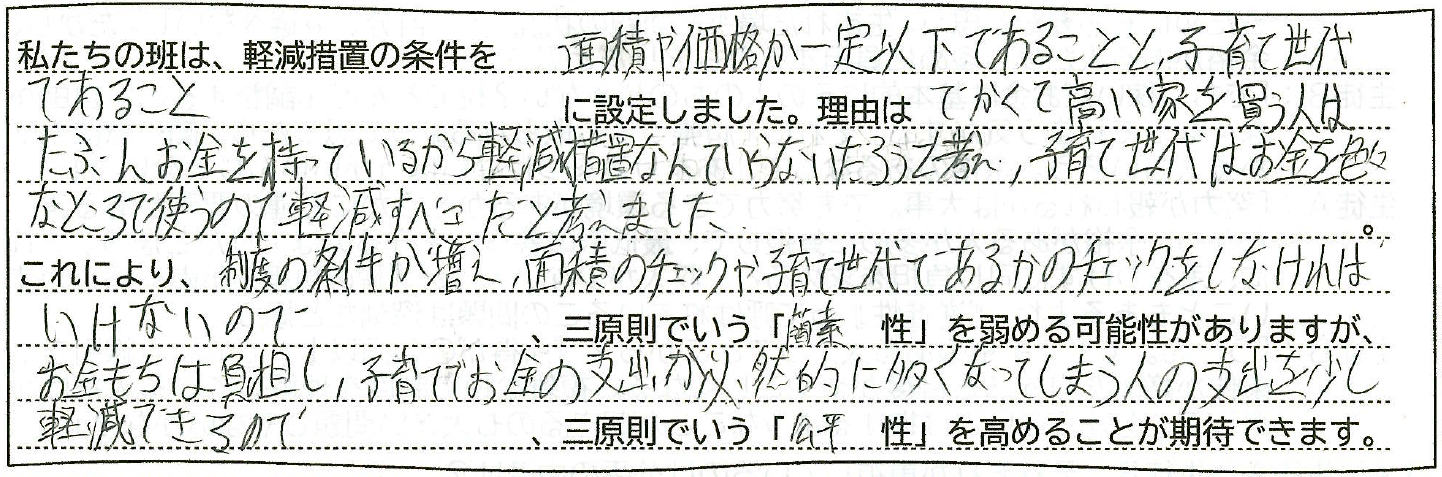 私たちの班は、軽減措置の条件を 面積や価格が一定以下であることと、子育て世代
であること に設定しました。理由は でかくて高い家を買う人は
たぶんお金を持っているから軽減措置なんていらないだろうと考え、子育て世代はお金を色々
なところで使うので軽減すべきだと考えました。
これにより、制度の条件が増え、面積のチェックや子育て世代であるかのチェックをしなければ
いけないので、三原則でいう「簡素 性」を弱める可能性がありますが、
お金もちは負担し、子育てでお金の支出が必然的に多くなってしまう人の支出を少し
軽減できるので、三原則でいう「公平 性」を高めることが期待できます。